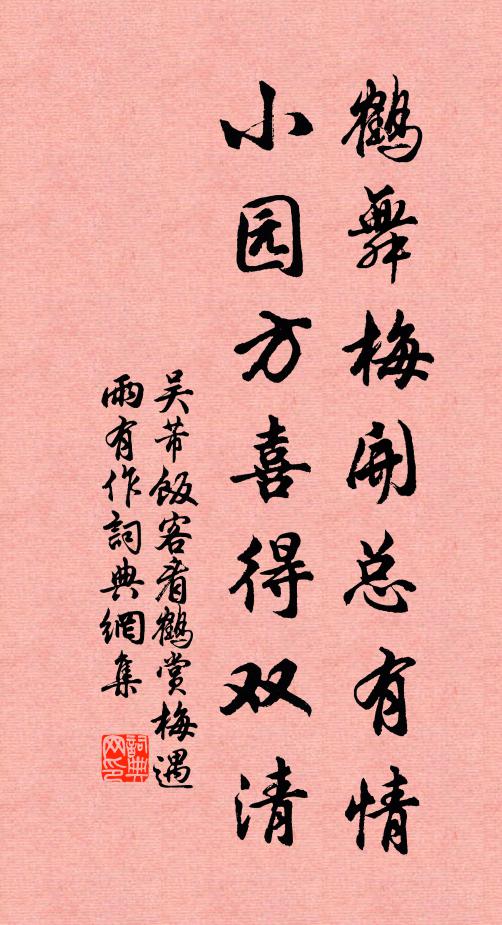 鹤舞梅开总有情
小园方喜得双清
吴芾饭客看鹤赏梅遇
雨有作詞典網集
詞典
网印